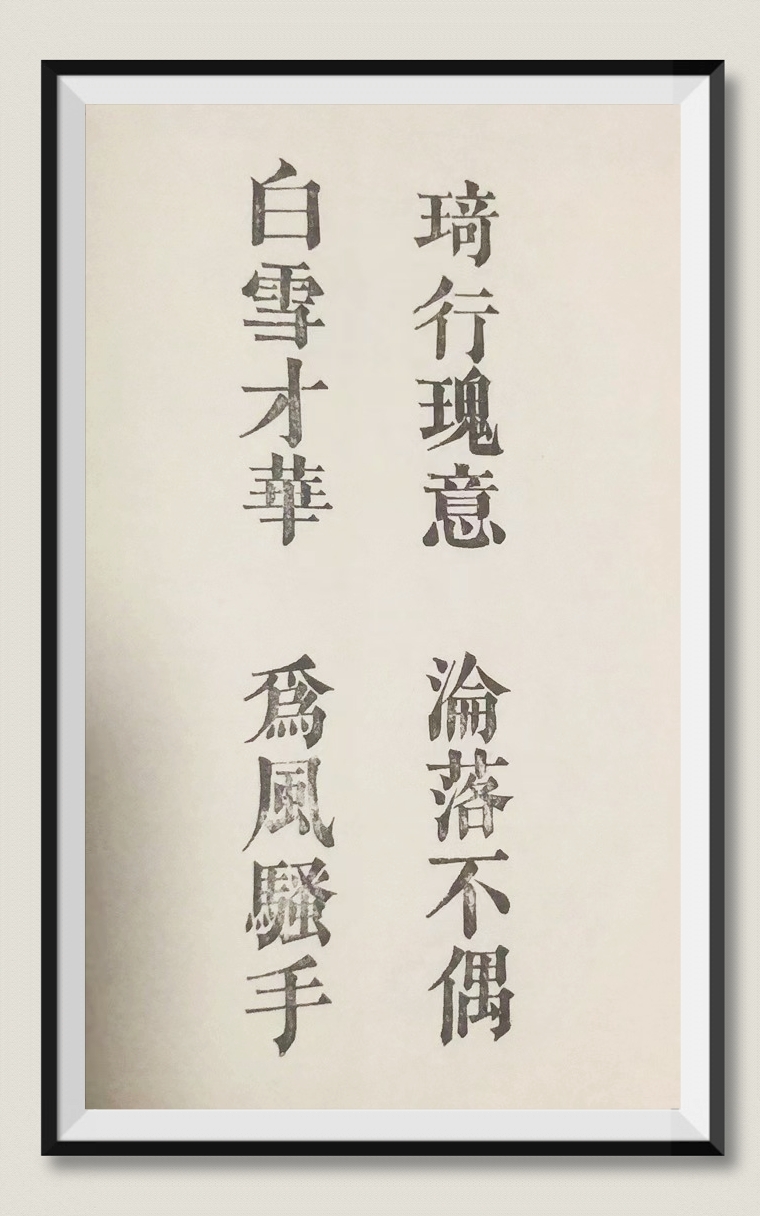 琦行瑰意 淪落不偶
白雪才華 爲風騷手